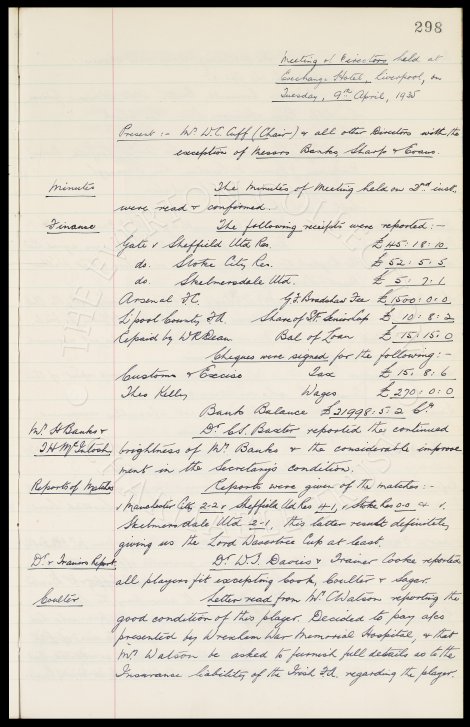 298
Meeting of Directors held at
Exchange Hotel, Liverpool, on
Tuesday, 9th April, 1935
Present :- Mr. W.C. Cuff (Chair) & all other Directors with the
exception of Messrs Banks, Sharp & Evans.
Minutes The Minutes of Meeting held on 2nd inst.
were read & confirmed.
Finance The following receipts were reported :-
Gate v Sheffield Utd Res. £45:18:10
do. Stoke City Res. £52:5:5
do. Skelmersdale Utd. £5:7:1
Arsenal F.C. G.F. Bradshaw Fee £1500:0:0
L'pool County F.A. Share of Senior Cup £10:8:2
Repaid by W R Dean Bal of Loan £15:15:0
Cheques were signed for the following :-
Customs & Excise Tax £15:8:6
Theo Kelly Wages £270:0:0
Bank Balance £21998:5:2 Cr.
Mr. H Banks & Dr. C.S. Baxter reported the continued
T.H. McIntosh brightness of Mr. Banks & the considerable improve
ment in the Secretary's condition.
Reports of Matches Reports were given of the matches :-
v Manchester City 2-2, v Sheffield Utd Res 4-1, v Stoke Res 0-0 & v
Skelmersdale Utd 2-1, this latter result definitely
giving us the Lord Wavertree Cup at least.
Dr. & Trainers Report Dr. W.J. Davies & Trainer Cooke reported
all players fit excepting Cook, Coulter & Sagar.
Coulter Letter read from Mr. C Watson reporting the
good condition of this player. Decided to pay a/cs
presented by Wrexham War Memorial Hospital, & that
Mr. Watson be asked to furnish full details as to the
Insurance liability of the Irish F.A. regarding the player.